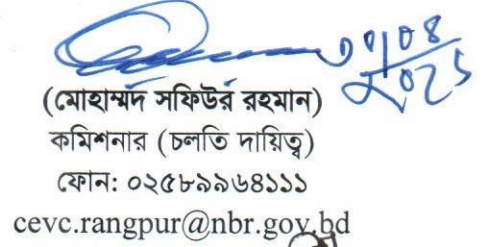 ২০২৫
(মোহাম্মদ সফিউর রহমান)
কমিশনার (চলতি দায়িত্ব)
ফোন: ০২৫৮৯৯৬৪১১১
cevc.rangpur@nbr.gov.bd